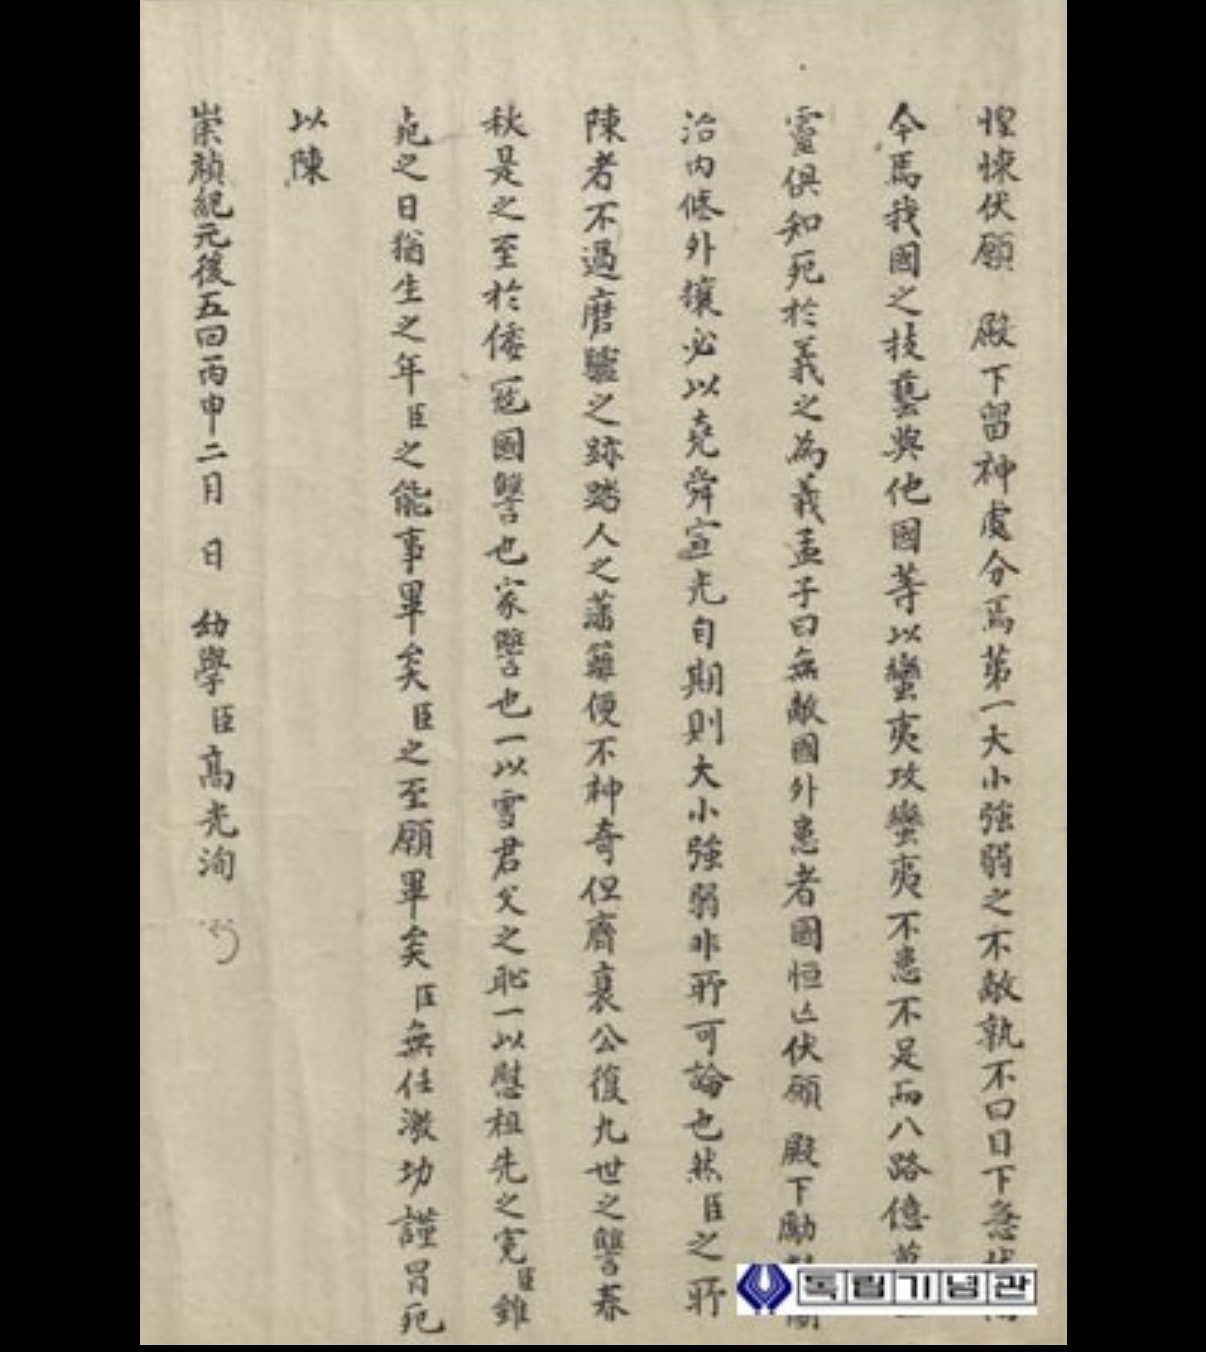 惶悚伏願 殿下留神處分焉第一大小強弱之不敵孰不曰目下急
今焉我國之技藝與他國等以蠻夷攻蠻夷不患不足而八路億萬
靈俱知死於義之為義孟子曰無敵國外患者國恒亡伏願 殿下勵
治內修外攘必以堯舜宣光自期則大小強弱非所可論也然臣之所
陳者不過磨驢之跡踏人之藩籬便不神奇但齊襄公復九世之讐春
秋是之至於倭冦國讐也家讐也一以雪君父之恥一以慰祖先之寃臣雖
死之日猶生之年臣之能事畢矣臣之至願畢矣臣無任激切謹冒死
以陳
崇禎紀元後五回丙申二月 日 幼學臣高光洵
독립기념관